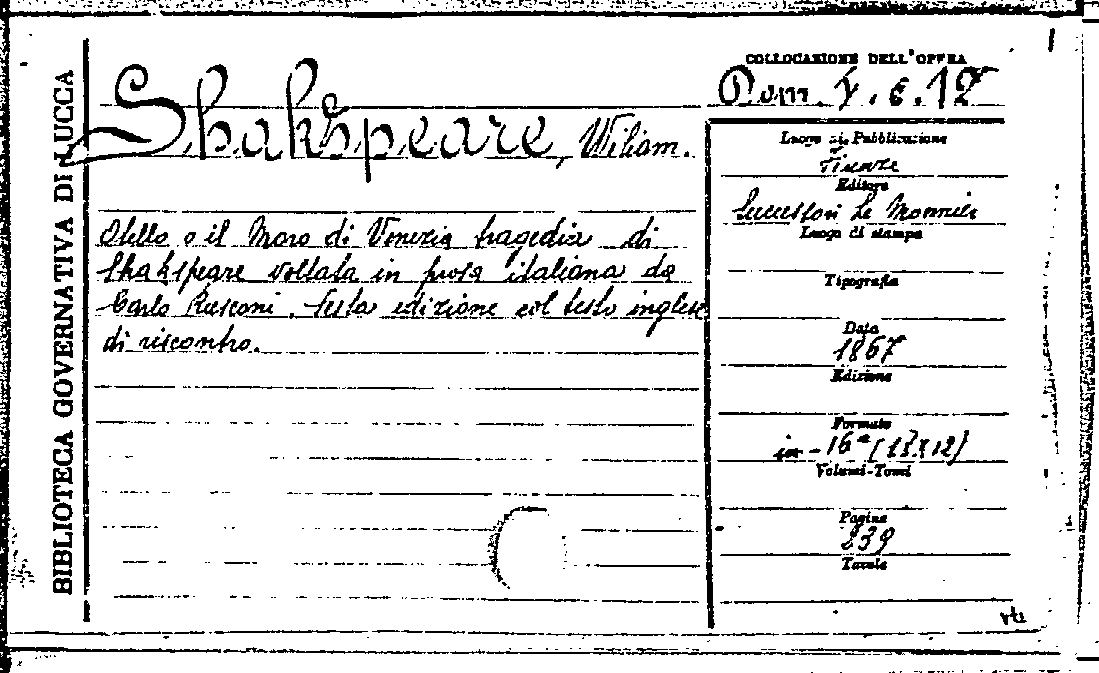 BIBLIOTECA GOVERNATIVA DI LUCCA
COLLOCAZIONE DELL'OPERA
Dom. V. e. 12
Shakspeare, Wiliam.
Otello o il Moro di Venezia tragedia di
Shakspeare voltata in prosa italiana da
Carlo Rusconi. Sesta edizione col testo inglese
di riscontro.
Luogo di Pubblicazione
Firenze
Editore
Successori Le Monnier
Luogo di stampa
Tipografia
Data
1867
Edizione
Formato
in-16° (17x12)
Volumi-Tomi
Pagine
239
Tavole